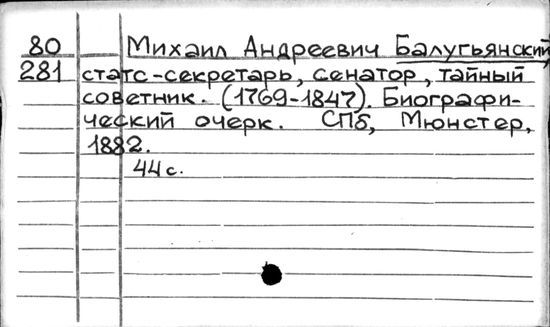 80 Михаил Андреевич Балугьянский,
281 статс-секретарь, сенатор, тайный
советник. (1769-1847). Биографи-
ческий очерк. СПб, Мюнстер,
1882.
44 с.